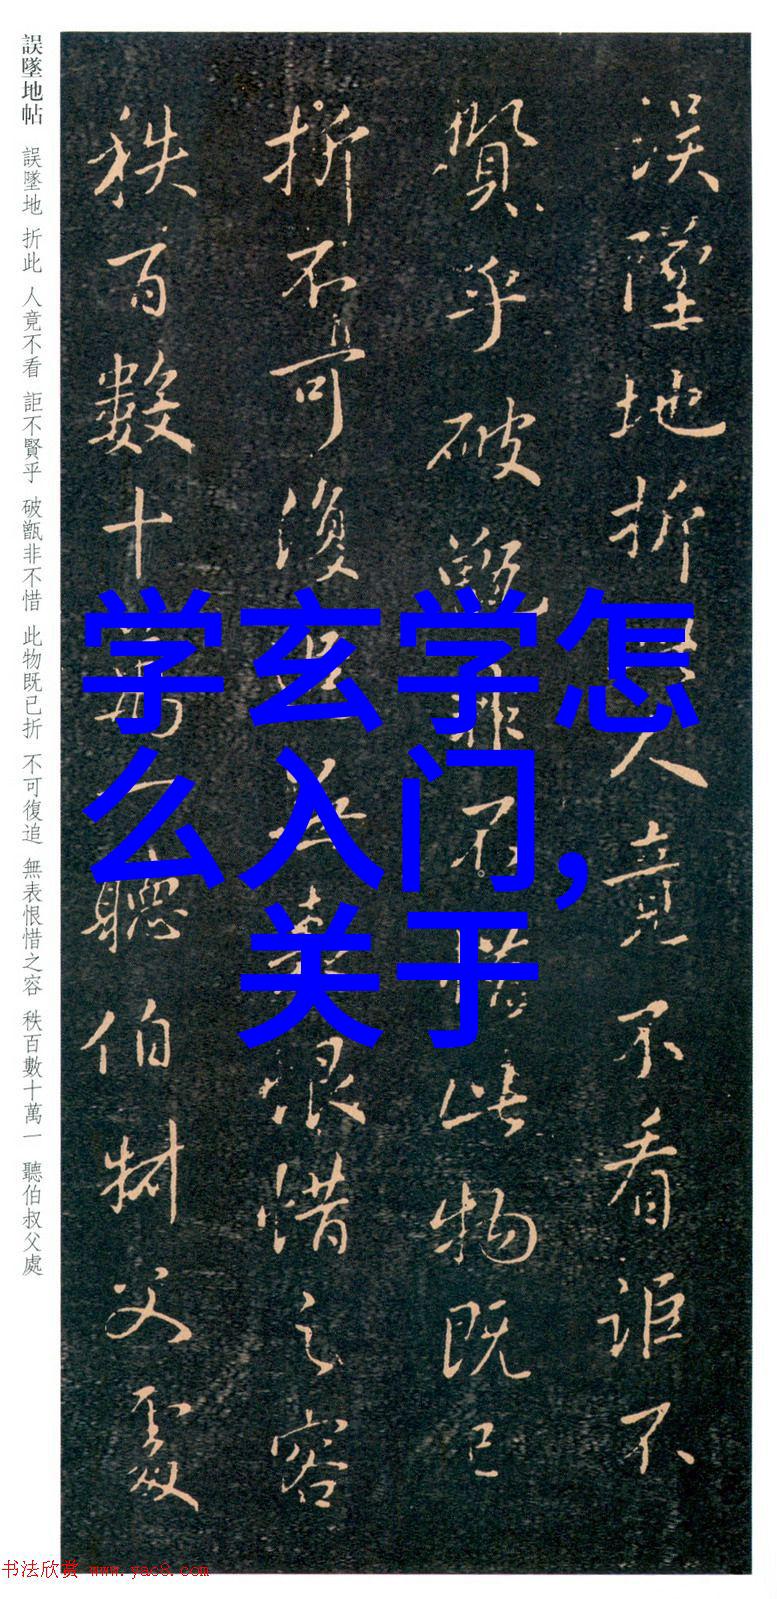 誤墜地帖 誤墜地 折此 人竟不看 詎不賢乎 破甑非不惜 此物既已折 不可復追 無表恨惜之容 秩百數十萬一 聽伯叔父處
误墜地折此人竟不看詎不
賢乎破甑非不惜此物既已
折不可復追無表恨惜之容
秩百數十萬一聽伯叔父處
学玄学怎
么入门,
关于
书法欣赏 www.yac8.com